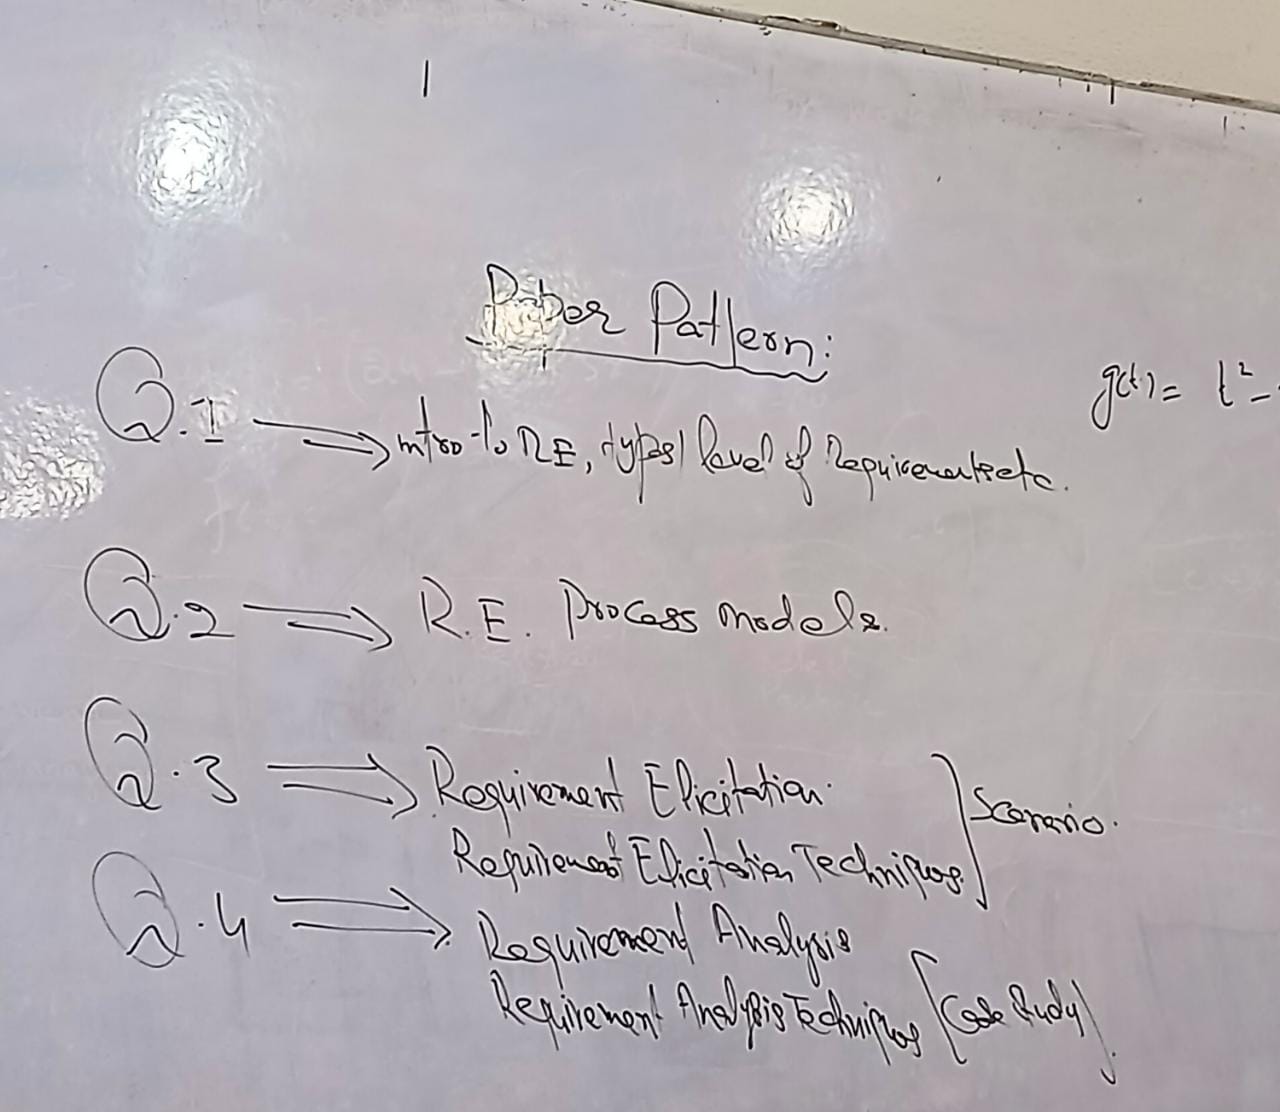 Paper Pattern:
g(t) = t² -
Q.1 ⇒ intro to RE, types/level of Requirements etc.
Q.2 ⇒ R.E. Process models.
Q.3 ⇒ Requirement Elicitation.
Requirement Elicitation Techniques. ] Scenario.
Q.4 ⇒ Requirement Analysis
Requirement Analysis Techniques [Case Study].